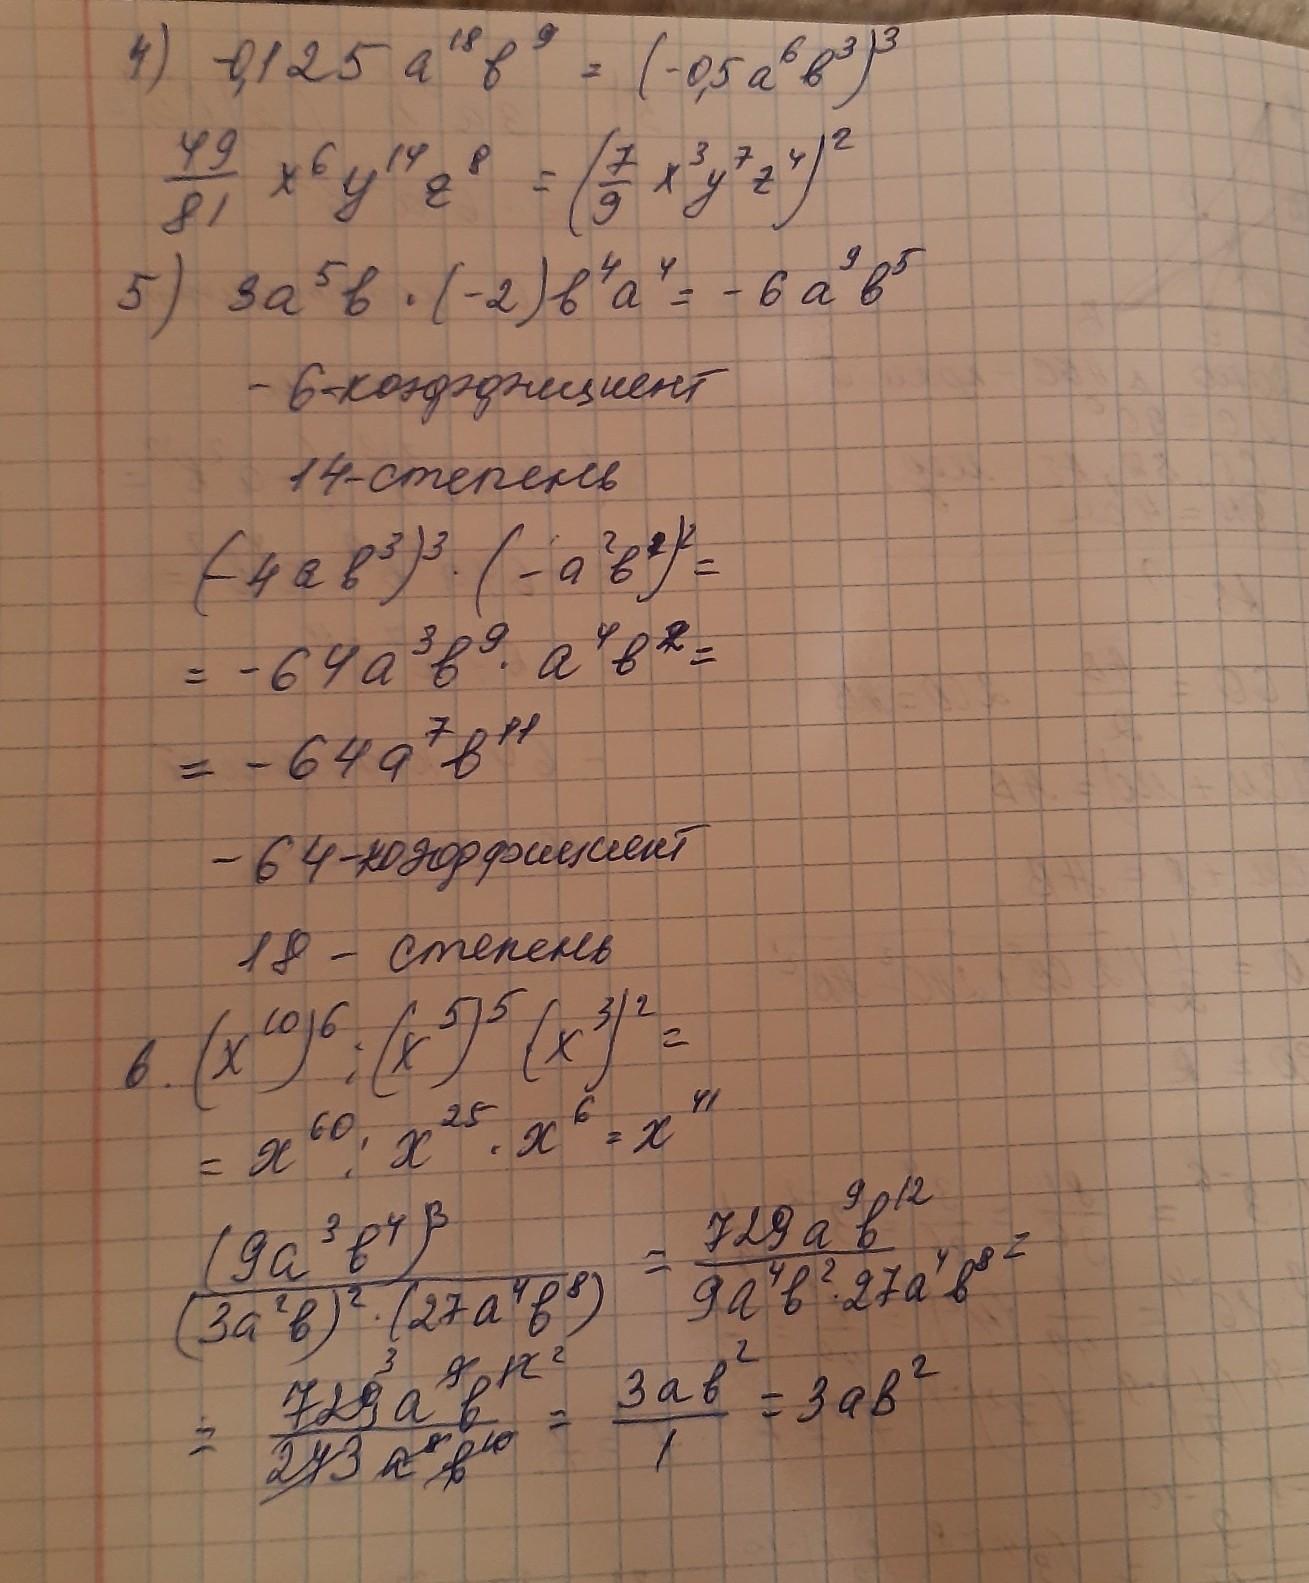 4) -0,125 a¹⁸b⁹ = (-0,5a⁶b³)³
49/81 x⁶y¹⁴z⁸ = (7/9 x³y⁷z⁴)²
5) 3a⁵b · (-2)b⁴a⁴ = -6a⁹b⁵
-6-коэффициент
14-степень
(-4ab³)³ · (-a²b¹)² =
= -64a³b⁹ · a⁴b² =
= -64a⁷b¹¹
-64-коэффициент
18 - степень
6. (x¹⁰)⁶ : (x⁵)⁵ (x³)² =
= x⁶⁰ : x²⁵ · x⁶ = x⁴¹
(9a³b⁴)³ / (3a²b)² · (27a⁴b⁸) = 729a⁹b¹² / 9a⁴b² · 27a⁴b⁸ =
= 729³a⁹b¹²² / 243a⁸b¹⁰ = 3ab² / 1 = 3ab²